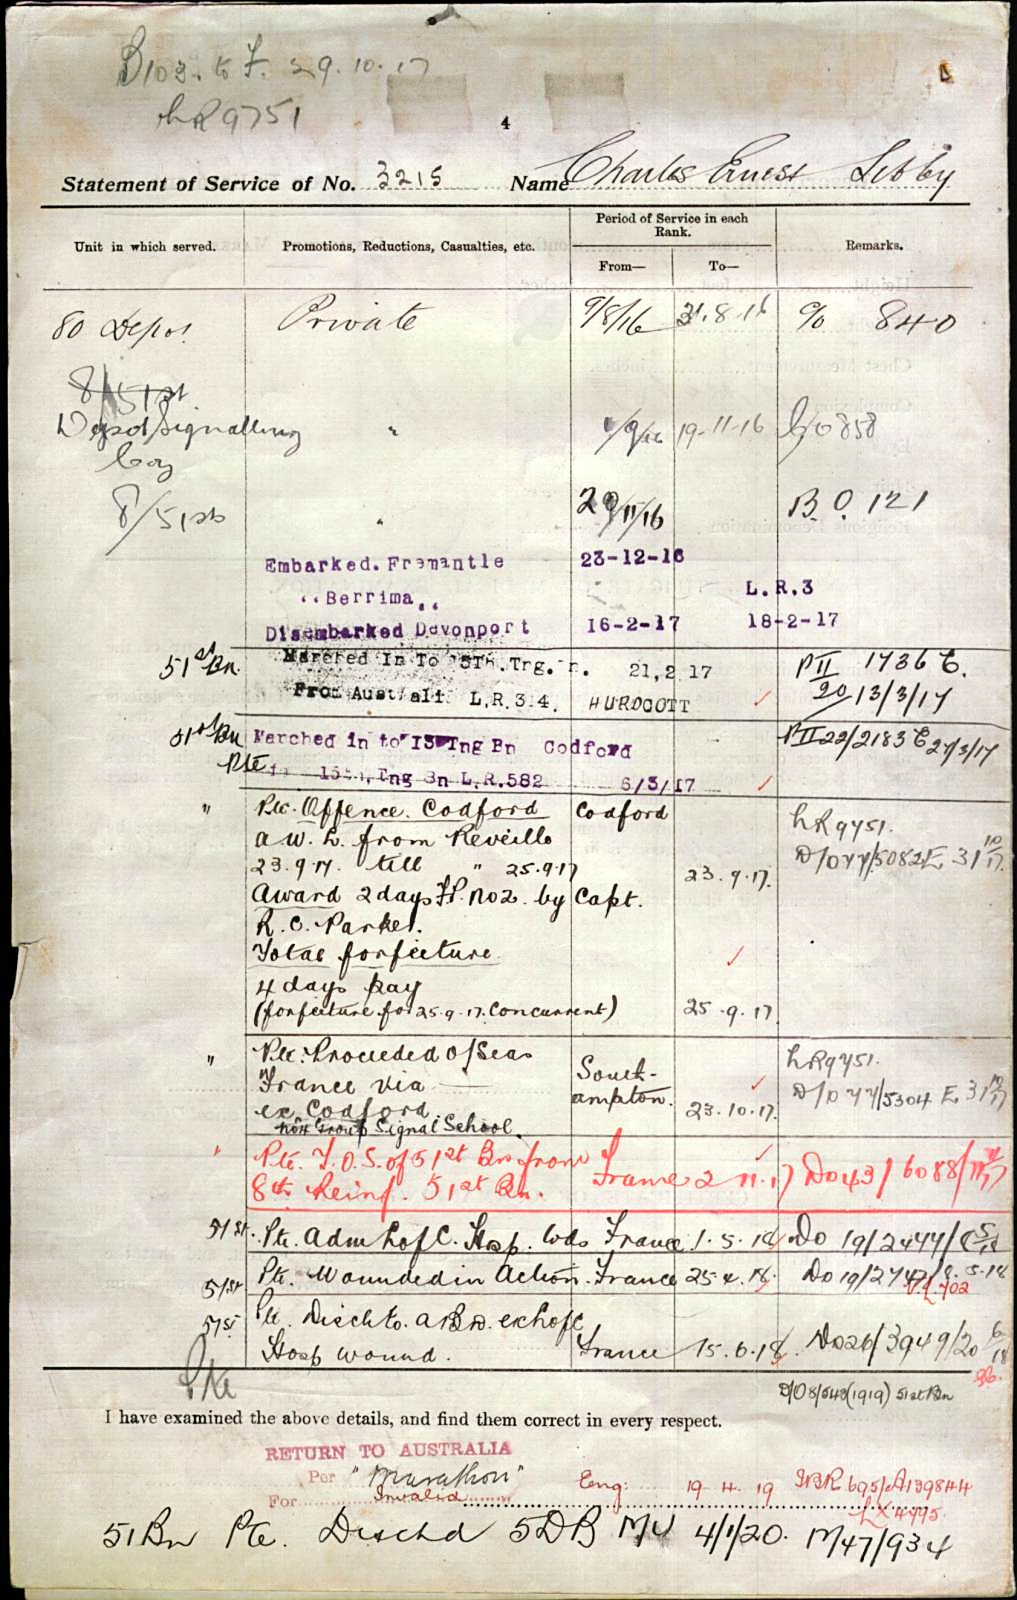 B103. to F. 29.10.17
LR 9751
4
Statement of Service of No. 3215 Name Charles Ernest Libby
Unit in which served.
Promotions, Reductions, Casualties, etc.
Period of Service in each Rank.
From—
To—
Remarks.
80 Depot Private 9/8/16 31.8.16 % 840
8/51st
Depot Signalling " 1/9/16 19-11-16 B O 858
Coy
8/51st " 29/11/16 B.O. 121
Embarked. Fremantle 23-12-16
"Berrima" L.R.3
Disembarked Devonport 16-2-17 18-2-17
51st Bn. Marched In To Trg. 21,2 17 PII 1736 E.
From Australia L.R.34. HURDCOTT 20 13/3/17
51st Bn Marched in to Tng Bn Codford PII 22/2183 E 27/3/17
Pte Tng Bn L.R.582 6/3/17
" Pte. Offence. Codford Codford LR 9751.
A.W.L. from Reveille D/O 77/5082 E, 31 10/17
23.9.17. till " 25.9.17 23.9.17.
Award 2 days F.P. No 2. by Capt.
R. O. Parker.
Total forfeiture
4 days pay
(forfeiture for 25.9.17. Concurrent) 25.9.17
" Pte. Proceeded O/Seas South- LR 9751.
France via ampton. 23.10.17. D/O 77/5304 E, 31 10/17
ex Codford.
Signal School.
" Pte. T.O.S. of 51st Bn from France 2.11.17 Do 43/6088/
8th Reinf. 51st Bn.
51st. Pte. Adm L of C. Hosp. Wds France 1.5.18 Do 19/2477/
51st Pte. Wounded in Action. France 25.4.18. Do 19/2747/8.5.18
51st Pte. Disch to. A B D. ex L of C
Hosp wound. France 15.6.18 Do 26/3949/20 6/18
Pte D/O 8/543 (1919) 51st Bn
I have examined the above details, and find them correct in every respect.
RETURN TO AUSTRALIA
Per "Marathon" Eng: 19 4. 19
For Invalid
51 Bn Pte. Dischd 5DB MU 4/1/20. M47/934